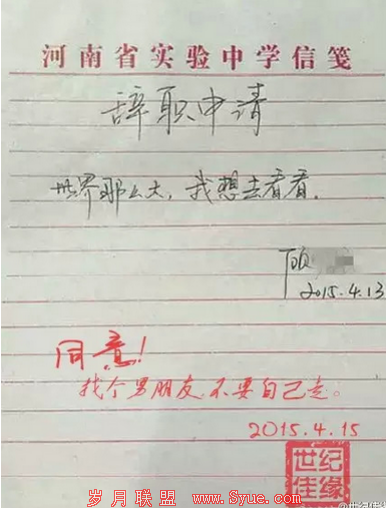 河南省实验中学信笺
辞职申请
世界那么大，我想去看看.
顾
2015.4.13
同意!
找个男朋友.不要自己走。
2015.4.15
世纪
佳缘
岁月联盟 www.Syue.com